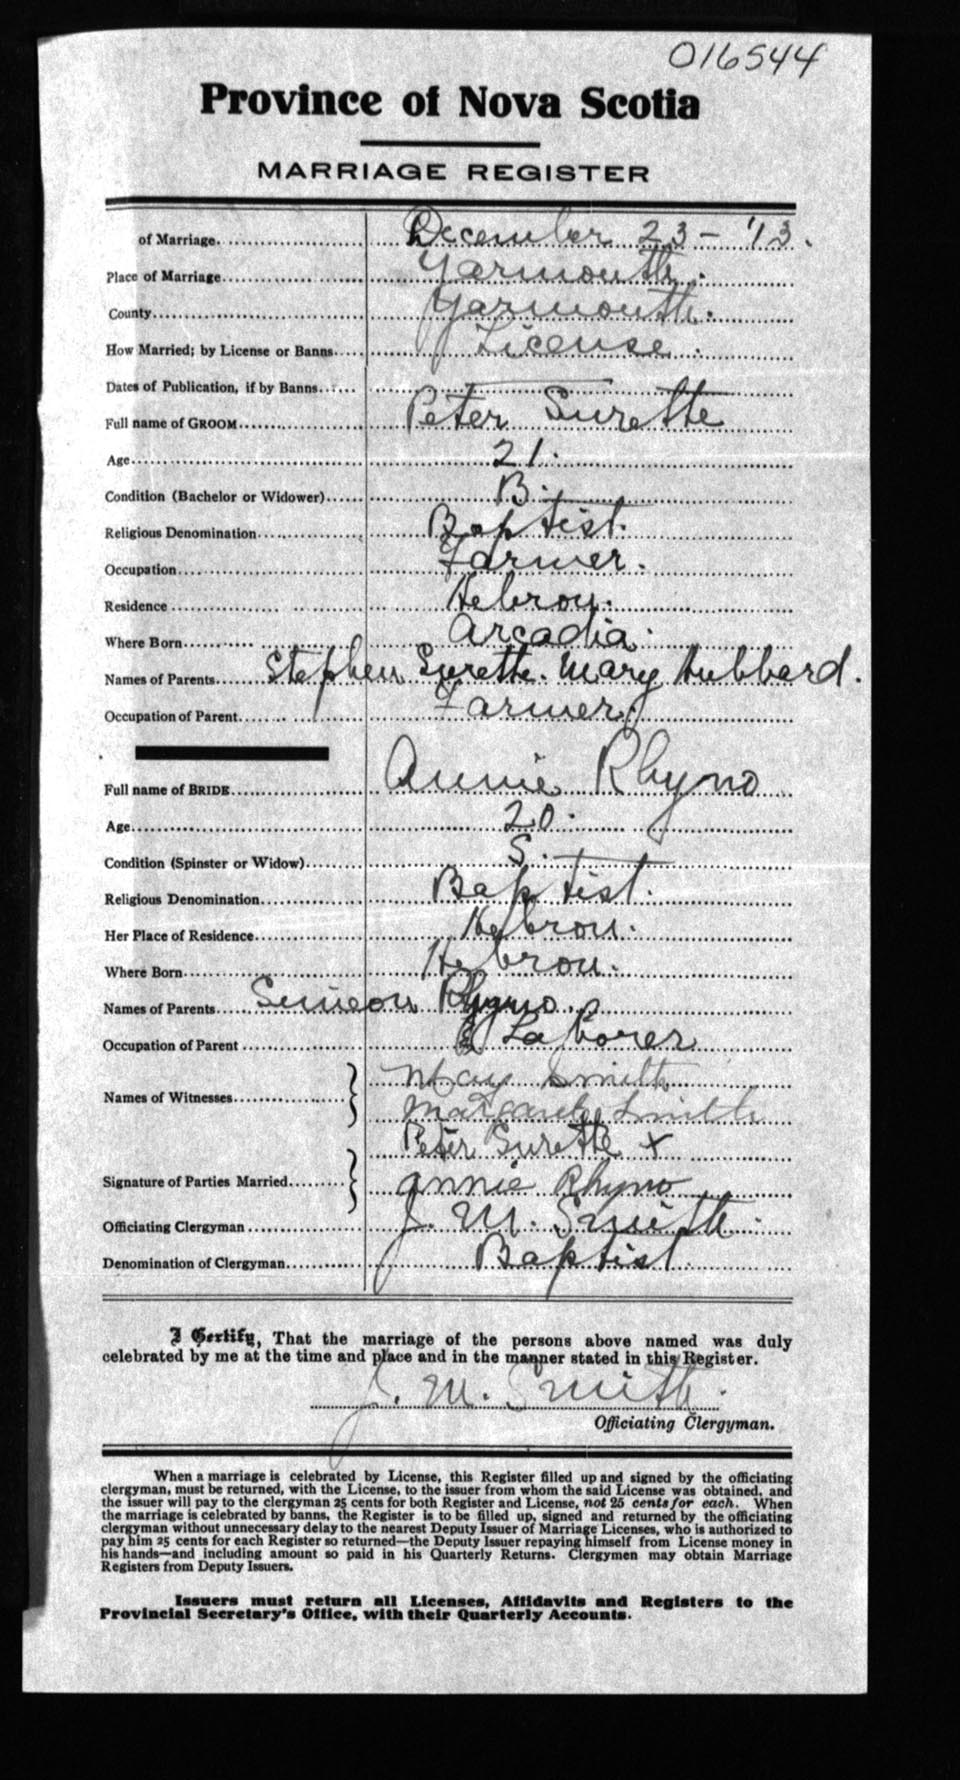 016544
Province of Nova Scotia
MARRIAGE REGISTER
of Marriage. December 23 - '13.
Place of Marriage Yarmouth.
County Yarmouth.
How Married; by License or Banns License.
Dates of Publication, if by Banns.
Full name of GROOM Peter Surette
Age 21.
Condition (Bachelor or Widower) B.
Religious Denomination Baptist.
Occupation Farmer.
Residence Hebron.
Where Born Arcadia.
Names of Parents Stephen Surette. Mary Hubbard.
Occupation of Parent Farmer.
Full name of BRIDE Annie Rhyno
Age 20.
Condition (Spinster or Widow) S.
Religious Denomination Baptist.
Her Place of Residence Hebron.
Where Born Hebron.
Names of Parents Simeon Rhyno.
Occupation of Parent Laborer
Names of Witnesses May Smith
Margaret Smith
Peter Surette x
Signature of Parties Married Annie Rhyno
Officiating Clergyman J. M. Smith.
Denomination of Clergyman Baptist.
I Certify, That the marriage of the persons above named was duly
celebrated by me at the time and place and in the manner stated in this Register.
J. M. Smith.
Officiating Clergyman.
When a marriage is celebrated by License, this Register filled up and signed by the officiating
clergyman, must be returned, with the License, to the issuer from whom the said License was obtained, and
the issuer will pay to the clergyman 25 cents for both Register and License, not 25 cents for each. When
the marriage is celebrated by banns, the Register is to be filled up, signed and returned by the officiating
clergyman without unnecessary delay to the nearest Deputy Issuer of Marriage Licenses, who is authorized to
pay him 25 cents for each Register so returned—the Deputy Issuer repaying himself from License money in
his hands—and including amount so paid in his Quarterly Returns. Clergymen may obtain Marriage
Registers from Deputy Issuers.
Issuers must return all Licenses, Affidavits and Registers to the
Provincial Secretary's Office, with their Quarterly Accounts.